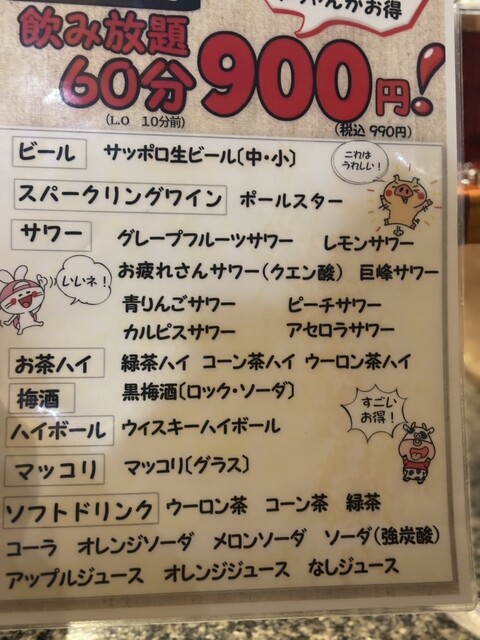 がお得
飲み放題
60分900円!
(L.O 10分前)
(税込 990円)
ビール サッポロ生ビール〔中・小〕
これは
うれしい!
スパークリングワイン ポールスター
サワー グレープフルーツサワー レモンサワー
お疲れさんサワー(クエン酸) 巨峰サワー
いいネ!
青りんごサワー ピーチサワー
カルピスサワー アセロラサワー
お茶ハイ 緑茶ハイ コーン茶ハイ ウーロン茶ハイ
梅酒 黒梅酒〔ロック・ソーダ〕
すごい
お得!
ハイボール ウイスキーハイボール
マッコリ マッコリ〔グラス〕
ソフトドリンク ウーロン茶 コーン茶 緑茶
コーラ オレンジソーダ メロンソーダ ソーダ(強炭酸)
アップルジュース オレンジジュース なしジュース